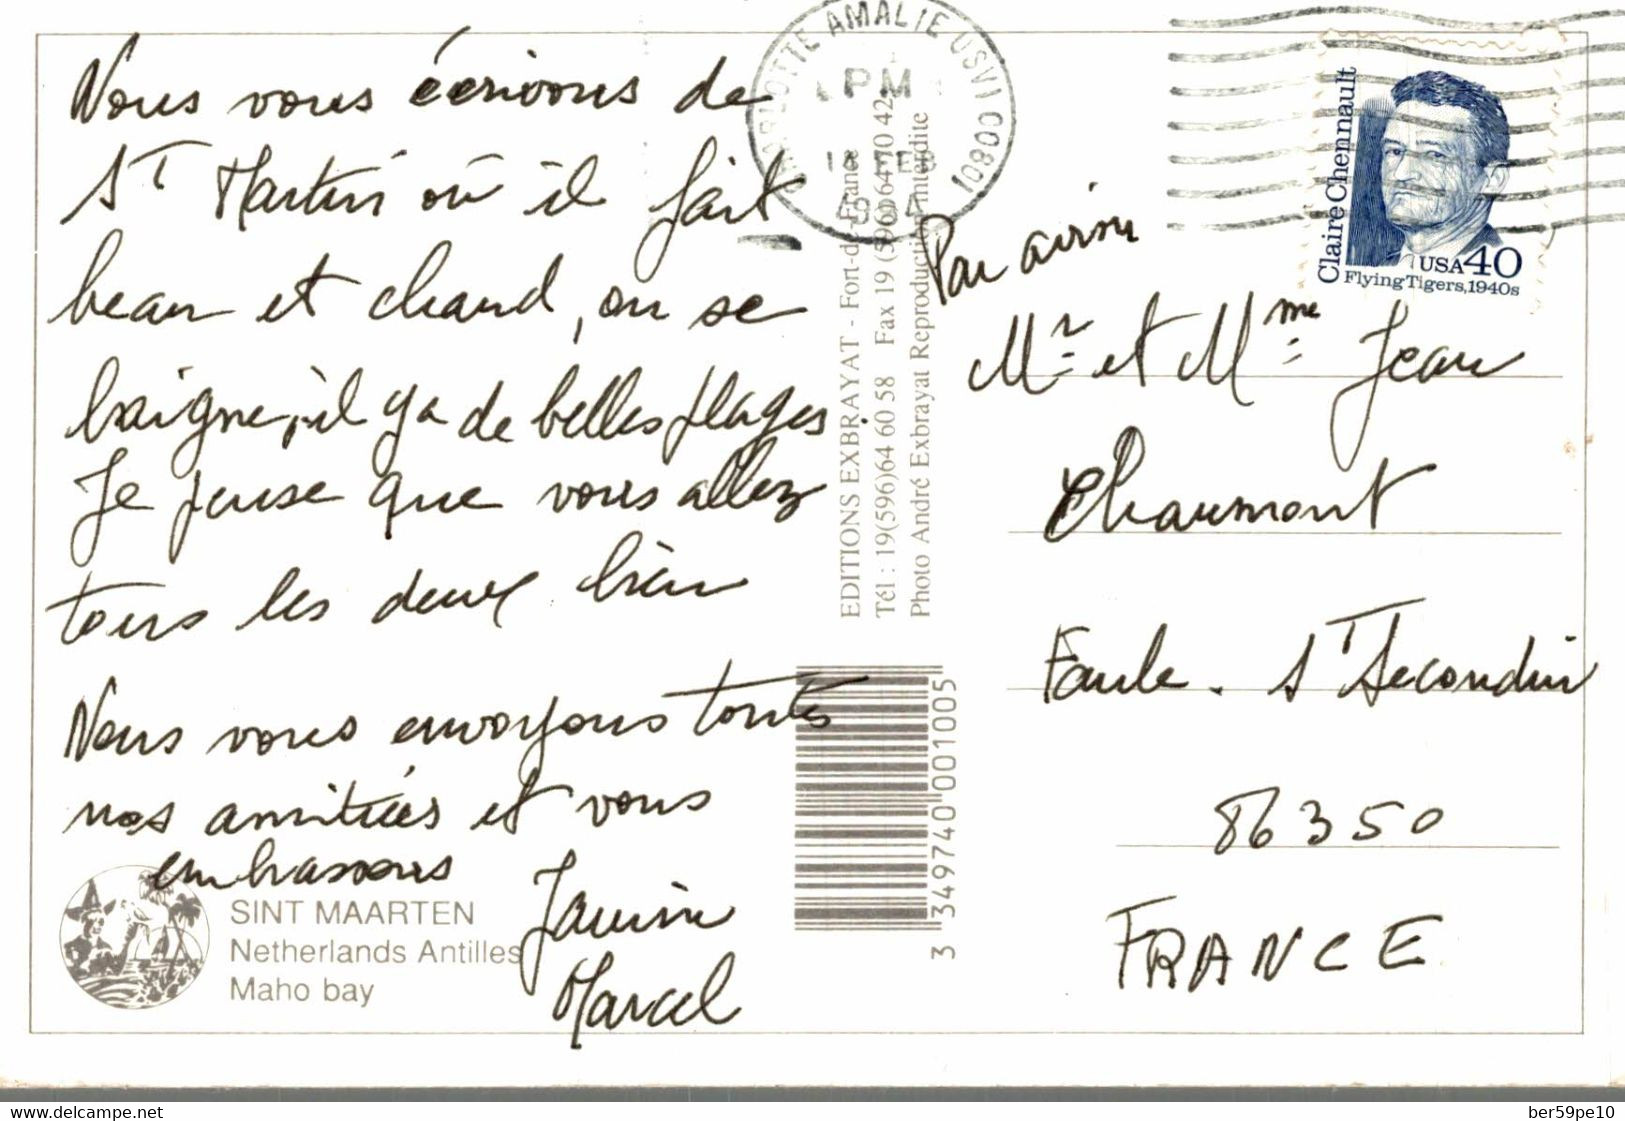 Nous vous écrivons de
St Martin où il fait
beau et chaud, on se
baigne, il y a de belles plages.
Je pense que vous allez
tous les deux bien
Nous vous envoyons toutes
nos amitiés et vous
embrassons
Janine
Marcel
SINT MAARTEN
Netherlands Antilles
Maho bay
EDITIONS EXBRAYAT - Fort-de-France
Tél : 19(596)64 60 58 Fax 19 (596)64 70 42
Photo André Exbrayat Reproduction interdite
3 349740 001005
CHARLOTTE AMALIE USVI 00801
PM
FEB
Claire Chennault
USA 40
Flying Tigers, 1940s
Par avion
Mr et Mme Jean
Chaumont
St Secondin
86350
FRANCE
delcampe.net
ber59pe10